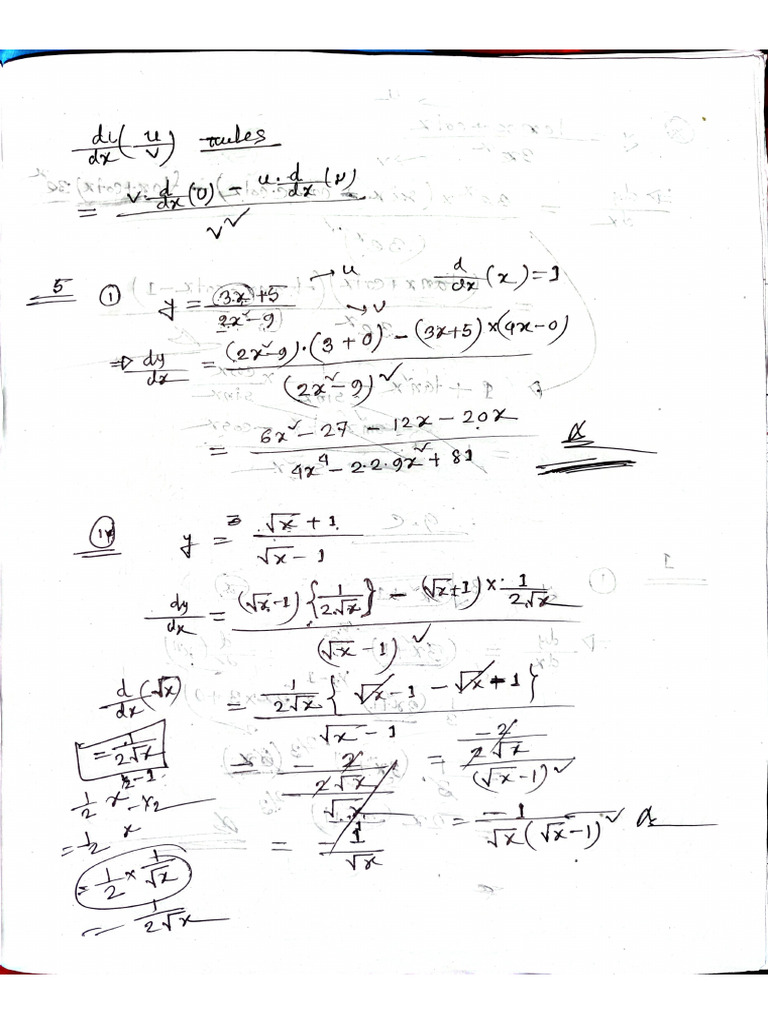 du/dx (u/v) rules
= (v · d/dx (u) − u · d/dx (v)) / v²
5 ① y = (3x+5)/(2x²−9) → u → v d/dx (x) = 1
⇒ dy/dx = ((2x²−9)·(3+0) − (3x+5)×(4x−0)) / (2x²−9)²
= (6x²−27 − 12x − 20x) / (4x⁴ − 2·2·9x² + 81)
y = (√x + 1)/(√x − 1)
dy/dx = ((√x−1) {1/(2√x)} − (√x+1) × 1/(2√x)) / (√x−1)²
d/dx (√x) = (1/(2√x) {√x − 1 − √x + 1}) / (√x − 1)
= 1/(2√x)
= − 2/(2√x) / √x = (−2/(2√x)) / (√x−1)²
1/2 x^(1/2−1)
= 1/2 x^(−1/2)
= − 1/√x = −1/(√x(√x−1)²)
= 1/2 × 1/√x
= 1/(2√x)